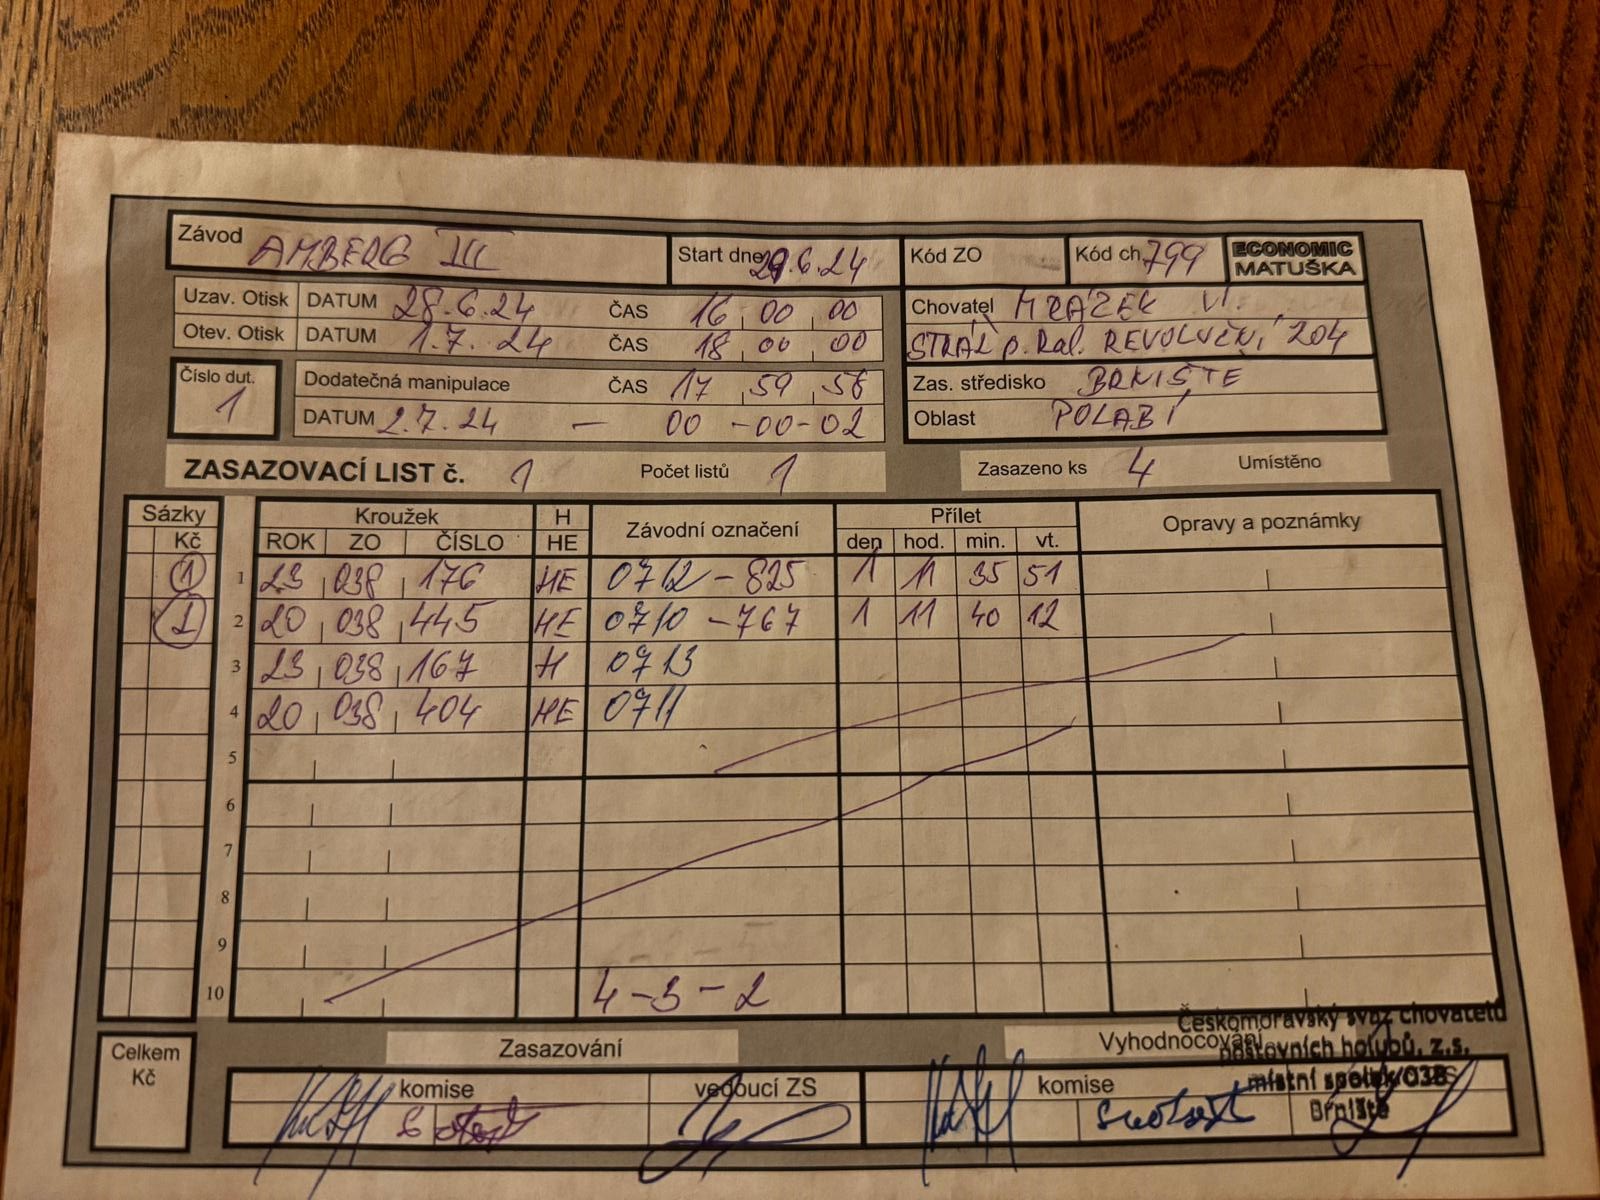 Závod AMBERG III Start dne 29.6.24 Kód ZO Kód ch 799 ECONOMIC MATUŠKA
Uzav. Otisk DATUM 28.6.24 ČAS 16 00 00 Chovatel MRÁZEK Vl.
Otev. Otisk DATUM 1.7.24 ČAS 18 00 00 STRÁŽ p. Ral. REVOLUČNÍ 204
Číslo dut. 1 Dodatečná manipulace ČAS 17 59 58 Zas. středisko BRNIŠTĚ
DATUM 2.7.24 - 00-00-02 Oblast POLABÍ
ZASAZOVACÍ LIST č. 1 Počet listů 1 Zasazeno ks 4 Umístěno
Sázky Kroužek H Závodní označení Přílet Opravy a poznámky
Kč ROK ZO ČÍSLO HE den hod. min. vt.
1 1 23 038 176 HE 0712 - 825 1 11 35 51
1 2 20 038 445 HE 0710 - 767 1 11 40 12
3 23 038 167 H 0713
4 20 038 404 HE 0711
5
6
7
8
9
10 4-3-2
Celkem Kč Zasazování Vyhodnocování
komise vedoucí ZS komise ZS
Českomoravský svaz chovatelů
poštovních holubů, z.s.
místní spolek 038
Brniště